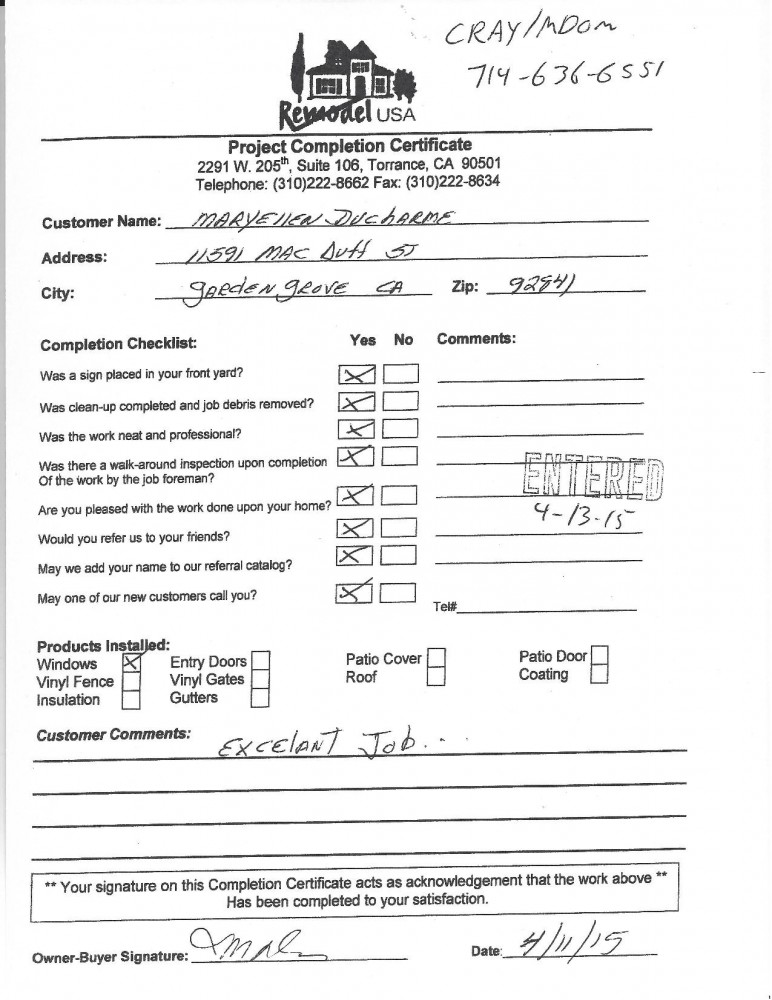 CRAY/MDOM
714-636-6551
Remodel USA
Project Completion Certificate
2291 W. 205th, Suite 106, Torrance, CA 90501
Telephone: (310)222-8662 Fax: (310)222-8634
Customer Name: MARYEllEN DUChARME
Address: 11591 MAC Duff ST
City: gARdEN gROVE CA Zip: 92841
Completion Checklist: Yes No Comments:
Was a sign placed in your front yard? X
Was clean-up completed and job debris removed? X
Was the work neat and professional? X
Was there a walk-around inspection upon completion X
Of the work by the job foreman?
ENTERED
Are you pleased with the work done upon your home? X
4-13-15
Would you refer us to your friends? X
May we add your name to our referral catalog? X
May one of our new customers call you? X
Tel#
Products Installed:
Windows X Entry Doors Patio Cover Patio Door
Vinyl Fence Vinyl Gates Roof Coating
Insulation Gutters
Customer Comments: EXCElANT Job...
** Your signature on this Completion Certificate acts as acknowledgement that the work above **
Has been completed to your satisfaction.
Owner-Buyer Signature: Date: 4/11/15